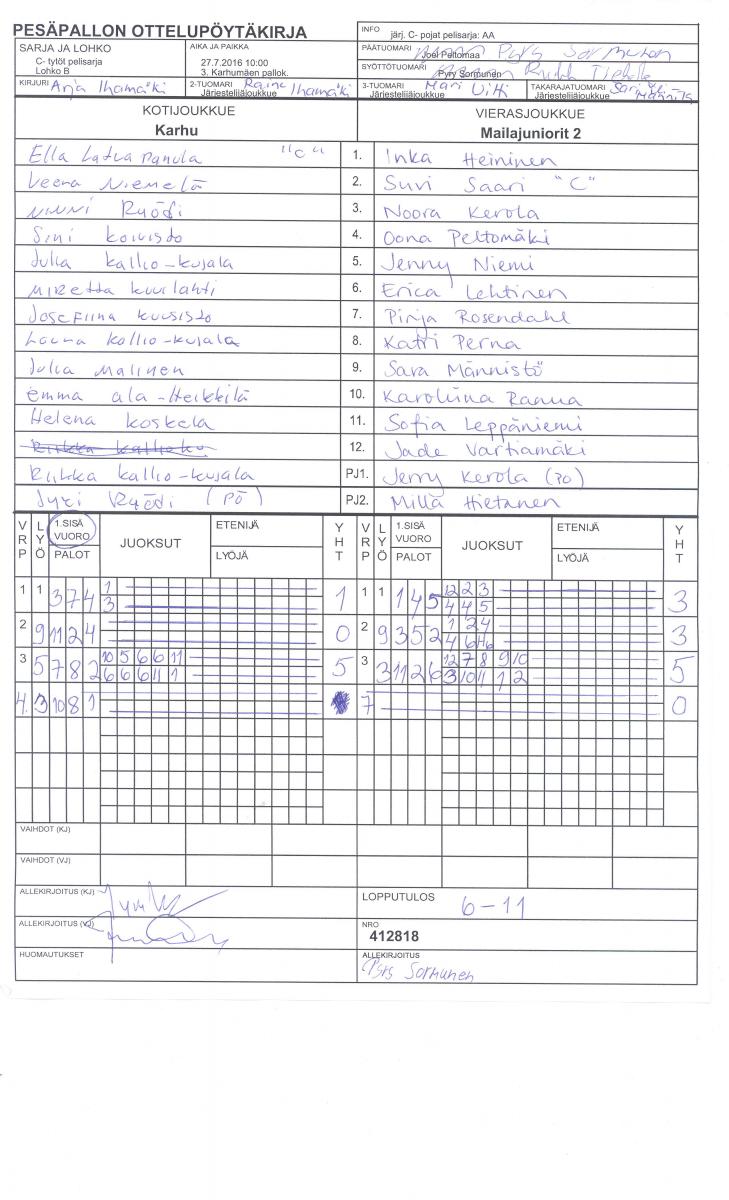 PESÄPALLON OTTELUPÖYTÄKIRJA
INFO järj. C- pojat pelisarja: AA
SARJA JA LOHKO
C- tytöt pelisarja
Lohko B
AIKA JA PAIKKA
27.7.2016 10:00
3. Karhumäen pallok.
PÄÄTUOMARI Joel Peltomaa Pyry Sormunen
SYÖTTÖTUOMARI Pyry Sormunen
KIRJURI Arja Ihamäki
2-TUOMARI Raine Ihamäki
Järjestelijäjoukkue
3-TUOMARI Mari Uitti
Järjestelijäjoukkue
TAKARAJATUOMARI Sari Männistö
Järjestelijäjoukkue
KOTIJOUKKUE
Karhu
VIERASJOUKKUE
Mailajuniorit 2
Ella Latvapanula "C" 1. Inka Heininen
Veera Niemelä 2. Suvi Saari "C"
Ninni Ryödi 3. Noora Kerola
Sini Koivisto 4. Oona Peltomäki
Julia Kallio-Kujala 5. Jenny Niemi
Miretta Kuulahti 6. Erica Lehtinen
Josefiina Kuusisto 7. Pinja Rosendahl
Laura Kallio-Kujala 8. Katri Perna
Julia Malinen 9. Sara Männistö
Emma Ala-Heikkilä 10. Karoliina Ranua
Helena Koskela 11. Sofia Leppäniemi
Riikka Kallioku 12. Jade Vartiamäki
Riikka Kallio-Kujala PJ1. Jerry Kerola (PO)
Jyri Ryödi (PÖ) PJ2. Milla Hietanen
VRP LYÖ 1.SISÄ VUORO PALOT JUOKSUT ETENIJÄ LYÖJÄ YHT VRP LYÖ 1.SISÄ VUORO PALOT JUOKSUT ETENIJÄ LYÖJÄ YHT
1 1 3 7 4 1 1 1 1 1 4 5 12 2 3 3
3 4 4 5
2 9 11 2 4 0 2 9 3 5 2 1 2 4 3
4 6
3 5 7 8 2 10 5 6 6 11 5 3 3 11 2 6 12 7 8 9 10 5
6 6 6 11 1 3 10 11 1 2
4. 3 10 8 1 7 0
VAIHDOT (KJ)
VAIHDOT (VJ)
ALLEKIRJOITUS (KJ)
LOPPUTULOS 6-11
ALLEKIRJOITUS (VJ)
NRO
412818
HUOMAUTUKSET
ALLEKIRJOITUS
Pyry Sormunen